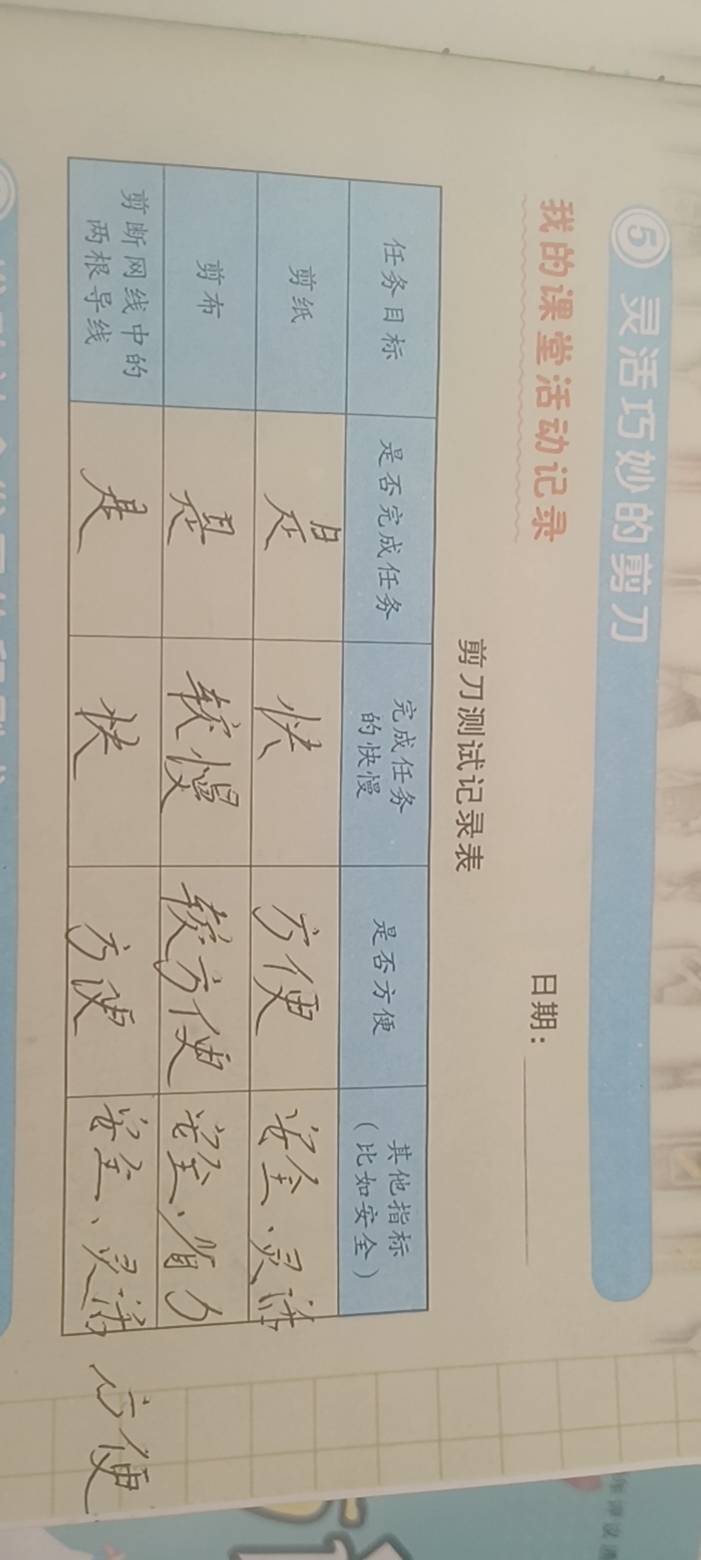 ⑤ 灵活巧妙的剪刀
我的课堂活动记录 日期：
剪刀测试记录表
任务目标 是否完成任务 完成任务的快慢 是否方便 其他指标（比如安全）
剪纸 是 快 方便 安全、灵活
剪布 是 较慢 较方便 安全、省力
剪断网线中的两根导线 是 快 方便 安全、灵活 方便